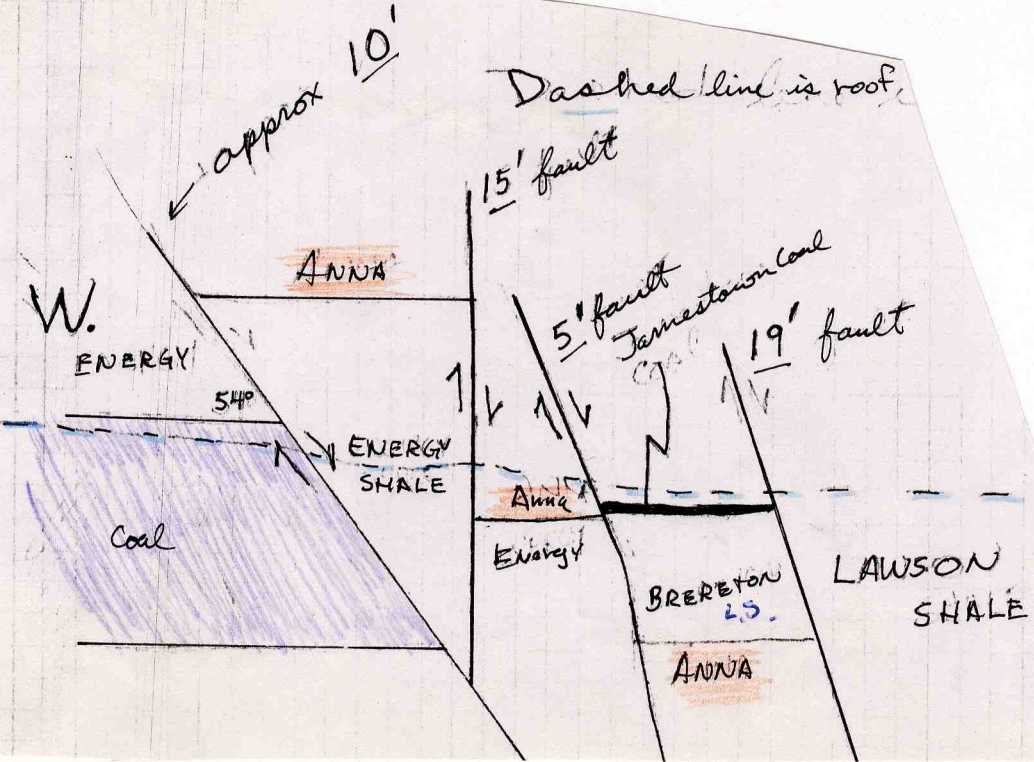 approx 10'
Dashed line is roof.
15' fault
ANNA
W.
ENERGY
54°
5' fault
Jamestown Coal
19' fault
ENERGY
SHALE
Anna
Coal
Energy
BRERETON
LS.
LAWSON
SHALE
ANNA